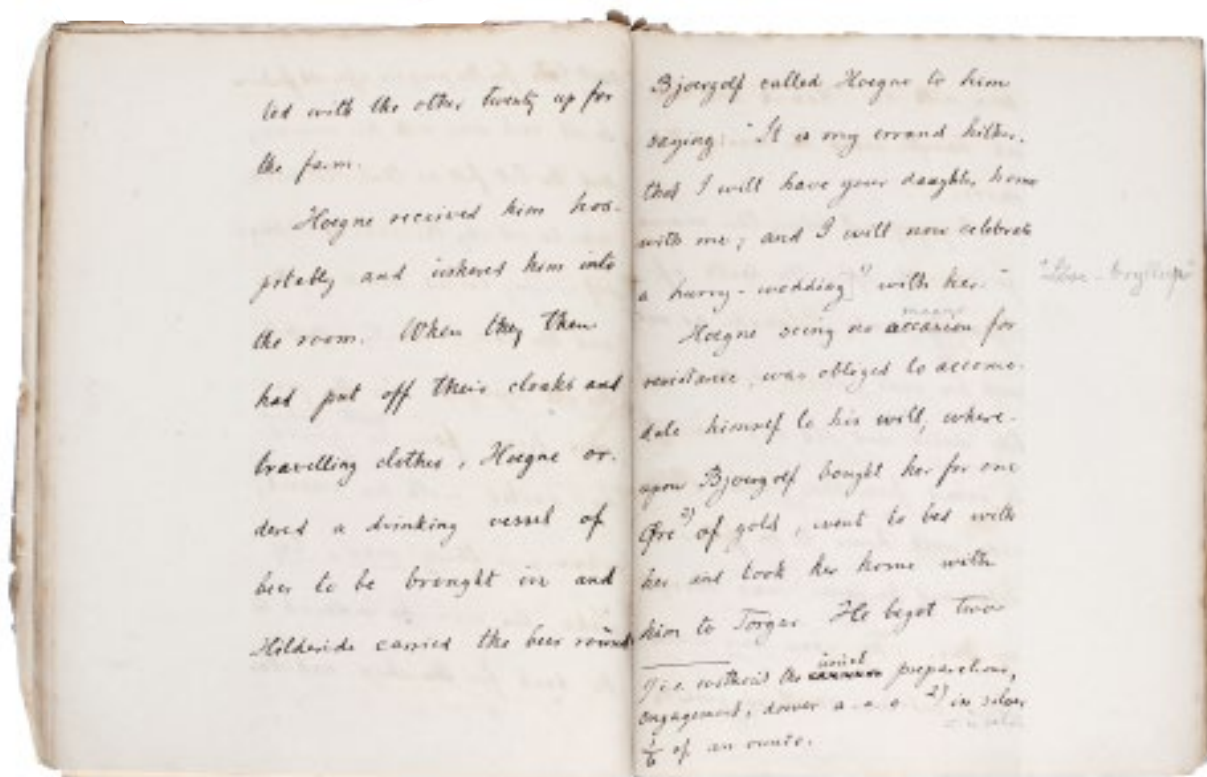 ted with the other twenty up for
the farm.
Hoegne received him hos-
pitably and ushered him into
the room. When they then
had put off their cloaks and
travelling clothes, Hoegne or-
dered a drinking vessel of
beer to be brought in and
Hilderide carried the beer round
Bjoergolf called Hoegne to him
saying: "It is my errand hither,
that I will have your daughter home
with me; and I will now celebrate
a hurry-wedding 1) with her."
Hoegne seeing no occasion for
means
resistance, was obliged to accomo-
date himself to his will, where-
upon Bjoergolf bought her for one
Øre 2) of gold, went to bed with
her and took her home with
him to Torgar. He begot two
1) i.e. without the usual preparations,
engagement, dower a.s.o. 2) in silver
1/6 of an ounce.